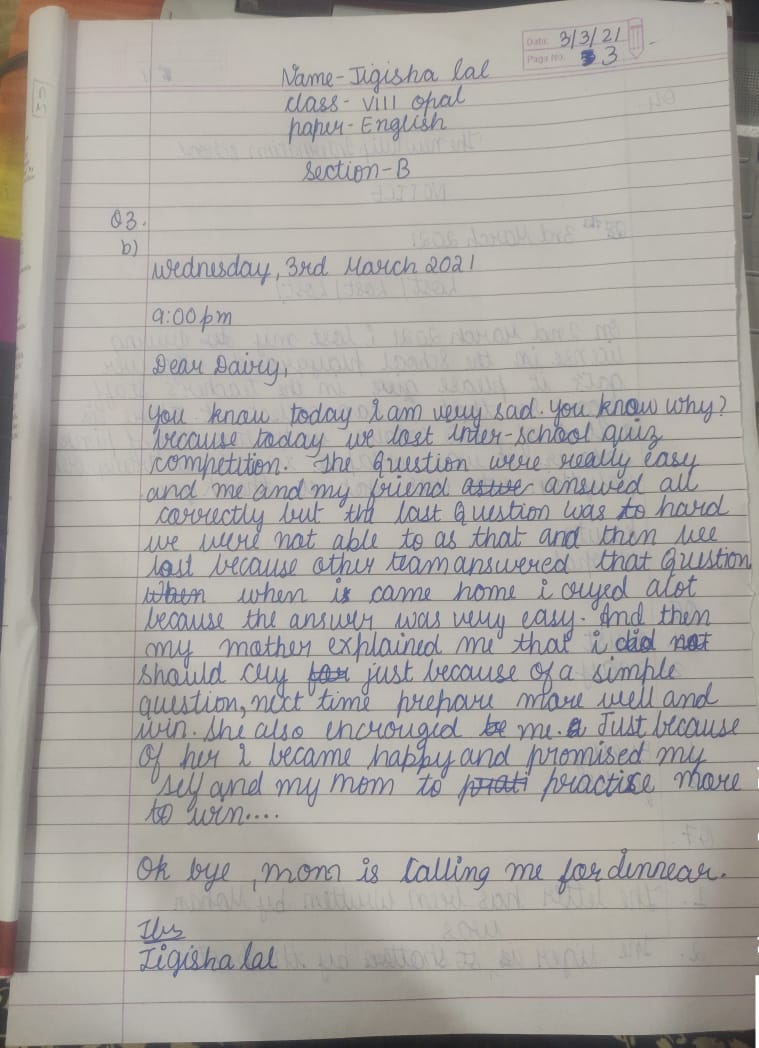 Date: 3/3/21
Page No. 3
Name- Jigisha lal
class- VIII opal
paper- English
Section-B
Q3.
b)
Wednesday, 3rd March 2021
9:00pm
Dear Dairy,
You know today I am very sad. you know why?
because today we lost inter-school quiz
competition. The question were really easy
and me and my friend answed all
correctly but the last question was to hard
we were not able to as that and then wee
lost because other team answered that question
when when i came home i cryed alot
because the answer was very easy. And then
my mother explained me that i did not
should cry for just because of a simple
question, next time prepare more well and
win. She also encrouged be me. Just because
of her I became happy and promised my
self and my mom to prati practise more
to win....
Ok bye, mom is calling me for dinnear.
Jigisha lal